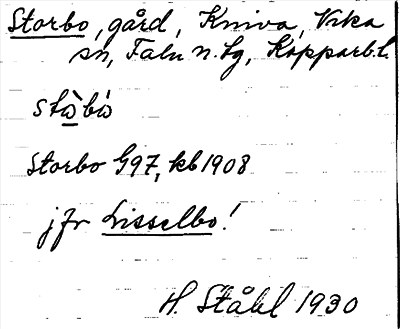 Storbo, gård, Kniva, Vika
sn, Falu n. tg, Kopparb. l.
stὼbὼ
Storbo G97, kb 1908
jfr Lisselbo!
H. Ståhl 1930